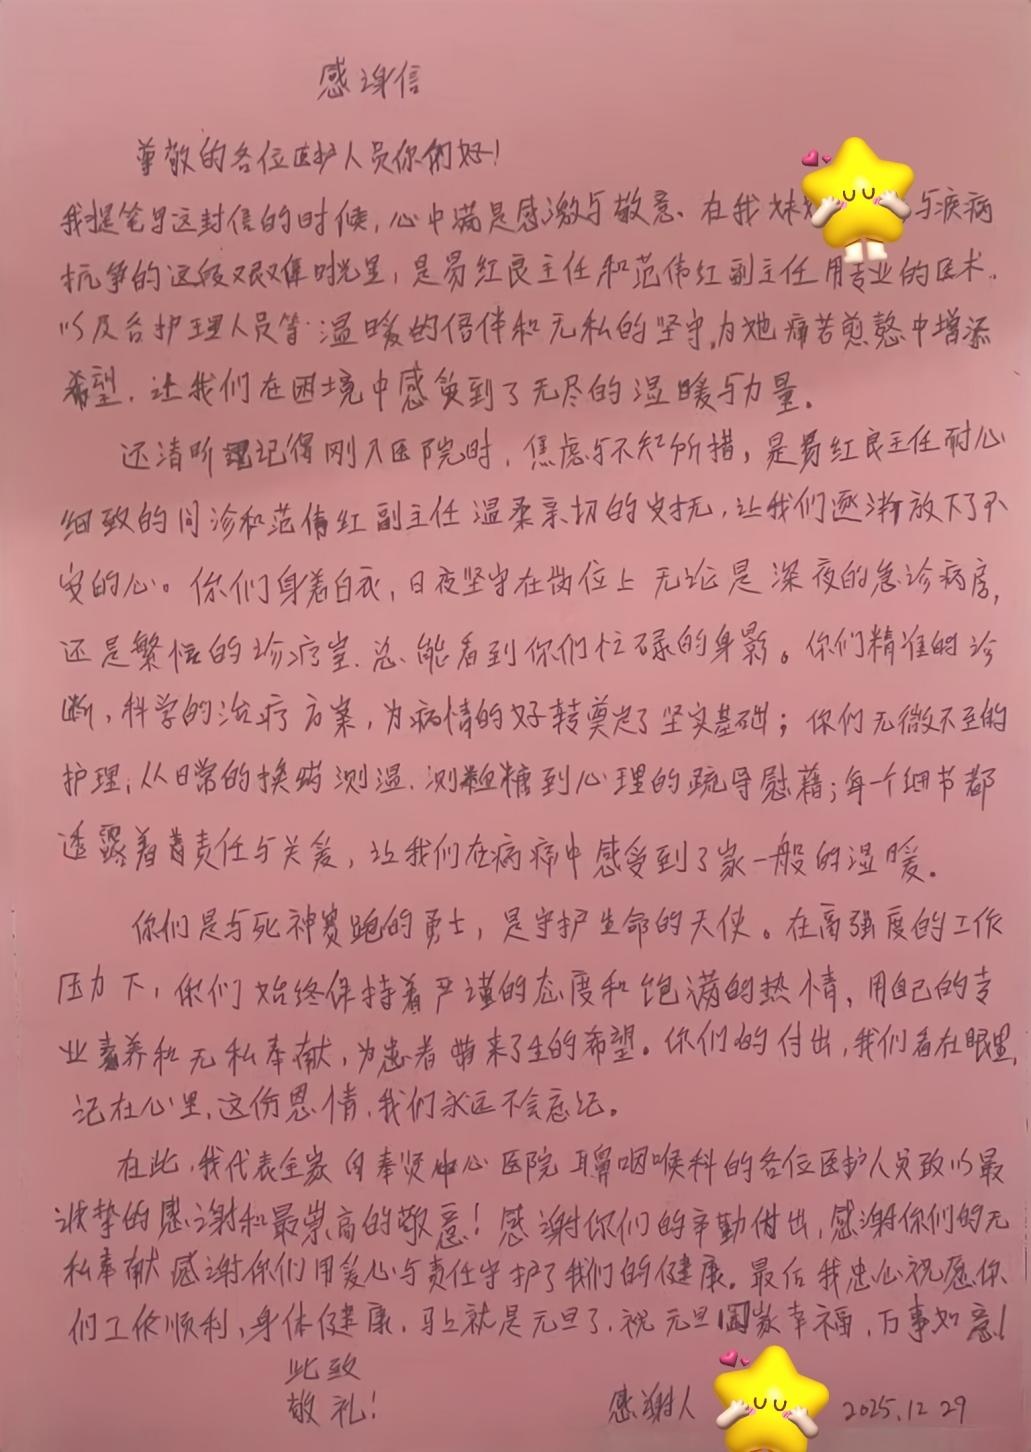 感谢信
尊敬的各位医护人员你们好！
我提笔写这封信的时候，心中满是感激与敬意、在我妹 与疾病
抗争的这段艰难时光里，是易红良主任和范倩红副主任用专业的医术、
以及各护理人员等温暖的陪伴和无私的坚守，为她痛苦煎熬中增添
希望．让我们在困境中感受到了无尽的温暖与力量。
还清晰记得刚入医院时，焦虑与不知所措，是易红良主任耐心
细致的问诊和范倩红副主任温柔亲切的安抚，让我们逐渐放下了不
安的心。你们身着白衣，日夜坚守在岗位上无论是深夜的急诊病房，
还是繁忙的诊疗室．总能看到你们忙碌的身影。你们精准的诊
断，科学的治疗方案，为病情的好转奠定了坚实基础；你们无微不至的
护理，从日常的换药测温．测血糖到心理的疏导慰藉；每个细节都
透露着责任与关爱，让我们在病痛中感受到了家一般的温暖。
你们是与死神赛跑的勇士，是守护生命的天使。在高强度的工作
压力下，你们始终保持着严谨的态度和饱满的热情，用自己的专
业素养和无私奉献，为患者带来了生的希望。你们的付出，我们看在眼里，
记在心里，这份恩情，我们永远不会忘记。
在此，我代表全家向奉贤中心医院耳鼻咽喉科的各位医护人员致以最
诚挚的感谢和最崇高的敬意！感谢你们的辛勤付出，感谢你们的无
私奉献感谢你们用爱心与责任守护了我们的健康。最后我忠心祝愿你
们工作顺利，身体健康．马上就是元旦了．祝元旦阖家幸福，万事如意！
此致
敬礼！
感谢人 2025.12.29